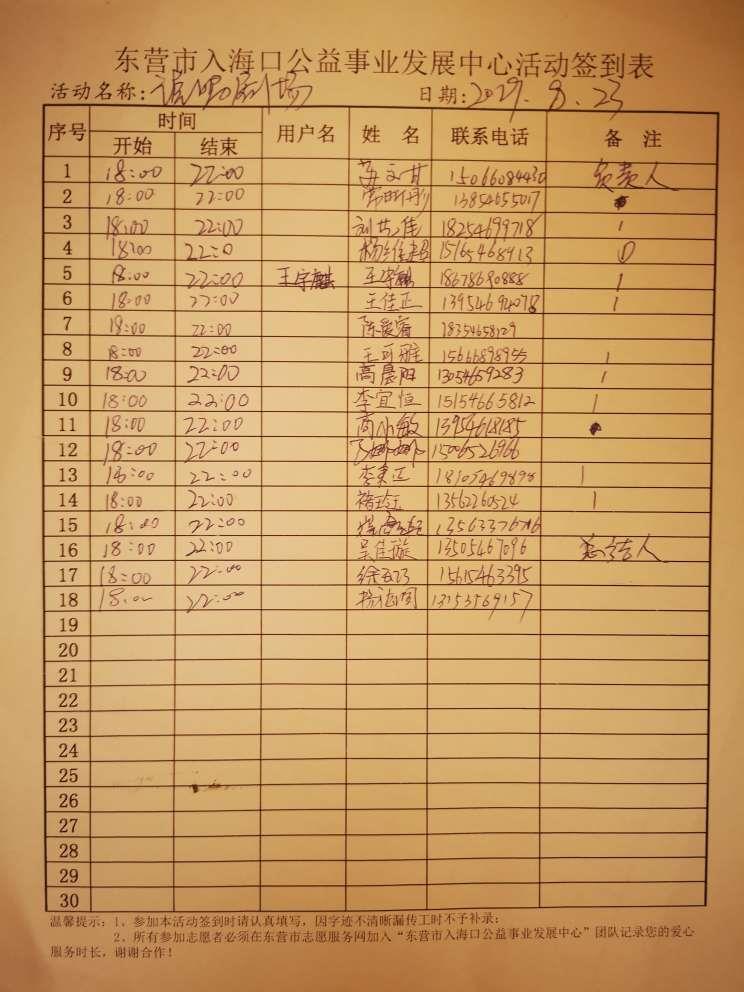 东营市入海口公益事业发展中心活动签到表
活动名称: 剧场 日期: 8.23
序号 时间 用户名 姓名 联系电话 备注
开始 结束
1 18:00 22:00 15066084430 负责人
2 18:00 22:00 13854655017
3 18:00 22:00 18254699718
4 18:00 22:0 15165468913
5 18:00 22:00 王宇麒 王宇麒 18678690888
6 18:00 22:00 王佳正 13954694078
7 18:00 22:00 18354658129
8 18:00 22:00 王可雅 15666898955
9 18:00 22:00 高晨阳 13054659283
10 18:00 22:00 李宜恒 15154665812
11 18:00 22:00 13954618185
12 18:00 22:00 15006526966
13 18:00 22:00 李秉正
14 18:00 22:00 13562260524
15 18:00 22:00
16 18:00 22:00 吴佳璇 13505467096 总结人
17 18:00 22:00 15615463395
18 18:00 22:00 13153569157
19
20
21
22
23
24
25
26
27
28
29
30
温馨提示: 1、参加本活动签到时请认真填写, 因字迹不清晰漏传工时不予补录;
2、所有参加志愿者必须在东营市志愿服务网加入“东营市入海口公益事业发展中心”团队记录您的爱心
服务时长, 谢谢合作!